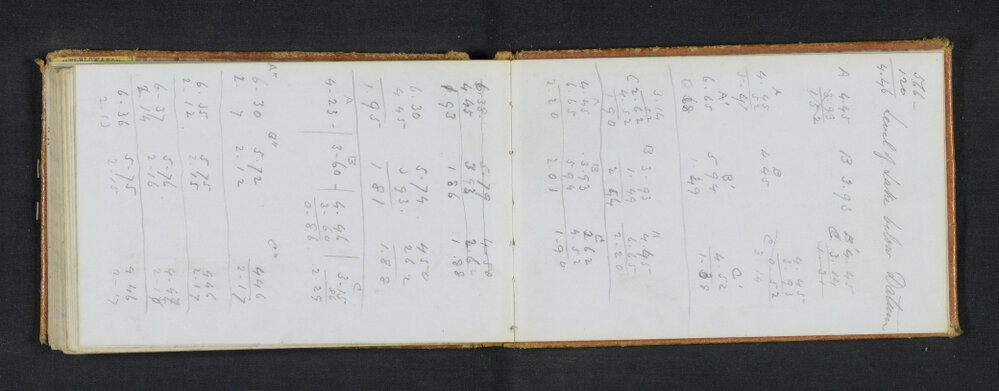 566 –
120
4.46 Level of Lake below Datum
A 4.45 B 3.93 B' 4.45
3.93 C 3.14
1.31
4.45
3.93
0.52
A B
4.45 4.45 C 3.14
A' B' C'
6.65 5.94 4.52
1.49
3.14 B 3.93 A 4.45
4.52 1.49 6.65
C 2.62 2.44 2.20
1.90
A B C
4.45 3.93 2.62
6.65 5.94 4.52
2.20 2.01 1.90
6.38 5.79 4.50
4.45 3.93 2.62
1.93 1.86 1.88
6.30 5.74 4.50
4.45 3.93 2.62
1.95 1.81 1.88
A B C
4.23 – 3.60 – 4.46 3.15
3.60 .86
0.86 2.29
A" B" C"
6.30 5.72 4.46
2.17 2.12 2.17
6.35 5.75 4.46
2.12 2.15 2.17
6.37 5.76 4.47
2.14 2.16 2.18
6.36 5.75 4.46
2.13 2.15 2.17